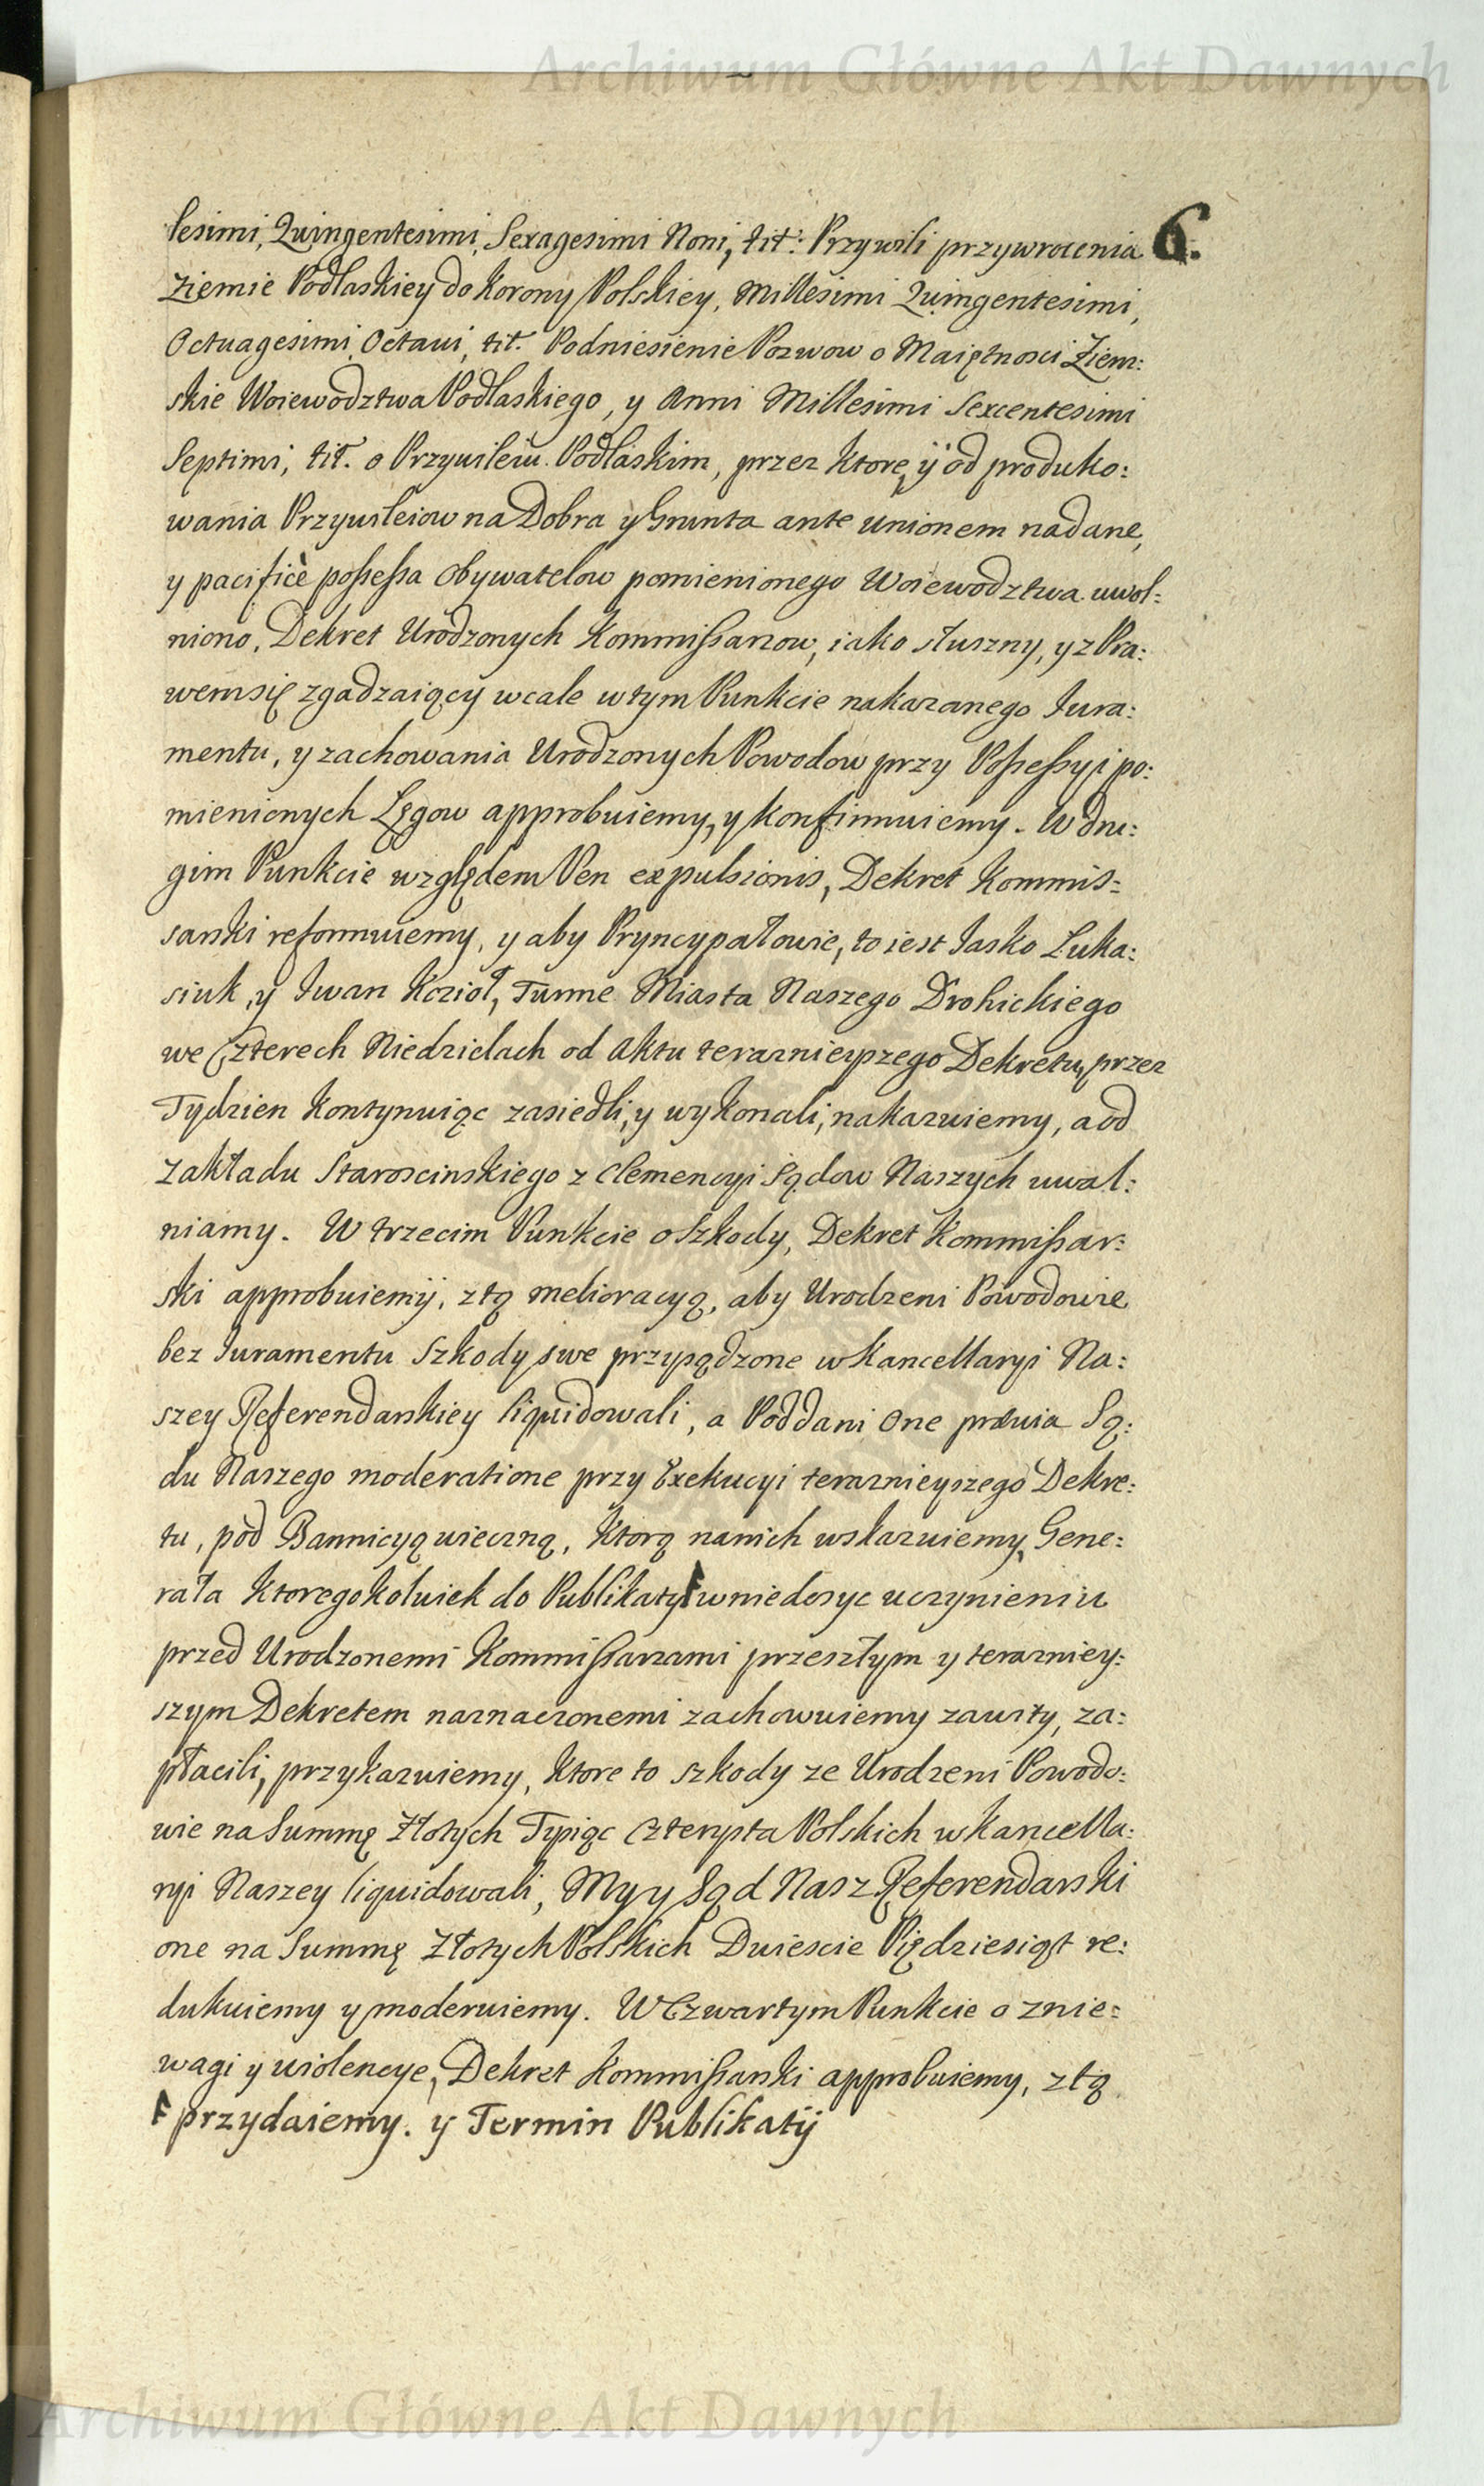 Archiwum Główne Akt Dawnych
lesimi, Quingentesimi, Sexagesimi Noni, tit: Przywili przywrocenia 6.
Ziemie Podlaskiey do Korony Polskiey, Millesimi Quingentesimi,
Octuagesimi Octaui, tit. Podniesienie Pozwow o Maiętnosci Ziem:
skie Woiewodztwa Podlaskiego, y Anni Millesimi Sexcentesimi
Septimi, tit. o Przywileiu Podlaskim, przez ktore, ÿ od produko:
wania Przywileiow na Dobra y Grunta ante unionem nadane,
y pacificè possessa Obywatelow pomienionego Woiewodztwa uwol:
niono, Dekret Urodzonych Kommissarzow, iako słuszny, y z Pra:
wem się zgadzaiący wcale w tym Punkcie nakazanego Jura:
mentu, y zachowania Urodzonych Powodow przy Possessyi po:
mienionych Lęgow approbuiemy, y konfirmuiemy. W dru:
gim Punkcie względem Pen expulsionis, Dekret Kommis:
sarski reformuiemy, y aby Pryncypałowie, to iest Jasko Luka:
siuk, y Iwan Kozioł, Turme Miasta Naszego Drohickiego
we Czterech Niedzielach od Aktu terazniejszego Dekretu, przez
Tydzien kontynuiąc zasiedli, y wykonali, nakazuiemy, a od
zakładu Staroscinskiego z Clemencyi Sądow Naszych uwal:
niamy. W trzecim Punkcie o Szkody, Dekret Kommissar:
ski approbuiemÿ, z tą melioracyą, aby Urodzeni Powodowie
bez Juramentu Szkody swe przysądzone w Kancellaryi Na:
szey Referendarskiey liquidowali, a Poddani One prævia Są:
du Naszego moderatione przy Exekucyi teraznieyszego Dekre:
tu, pod Bannicyą wieczną, ktorą na nich wskazuiemy, Gene:
rała ktoregokolwiek do Publikaty w niedosyc uczynieniu
przed Urodzonemi Kommissarzami przeszłym y terazniey:
szym Dekretem naznaczonemi zachowuiemy zawity, za:
płacili, przykazuiemy, ktore to szkody ze Urodzeni Powodo:
wie na Summę Złotych Tysiąc Czterysta Polskich w Kancella:
ryi Naszey liquidowali, My y Sąd Nasz Referendarski
one na Summę Złotych Polskich Dwiescie Piędziesiąt re:
dukuiemy y moderuiemy. W Czwartym Punkcie o znie:
wagi y wiolencye, Dekret Kommissarski approbuiemy, z tą
przydaiemy. y Termin Publikatÿ
Archiwum Główne Akt Dawnych